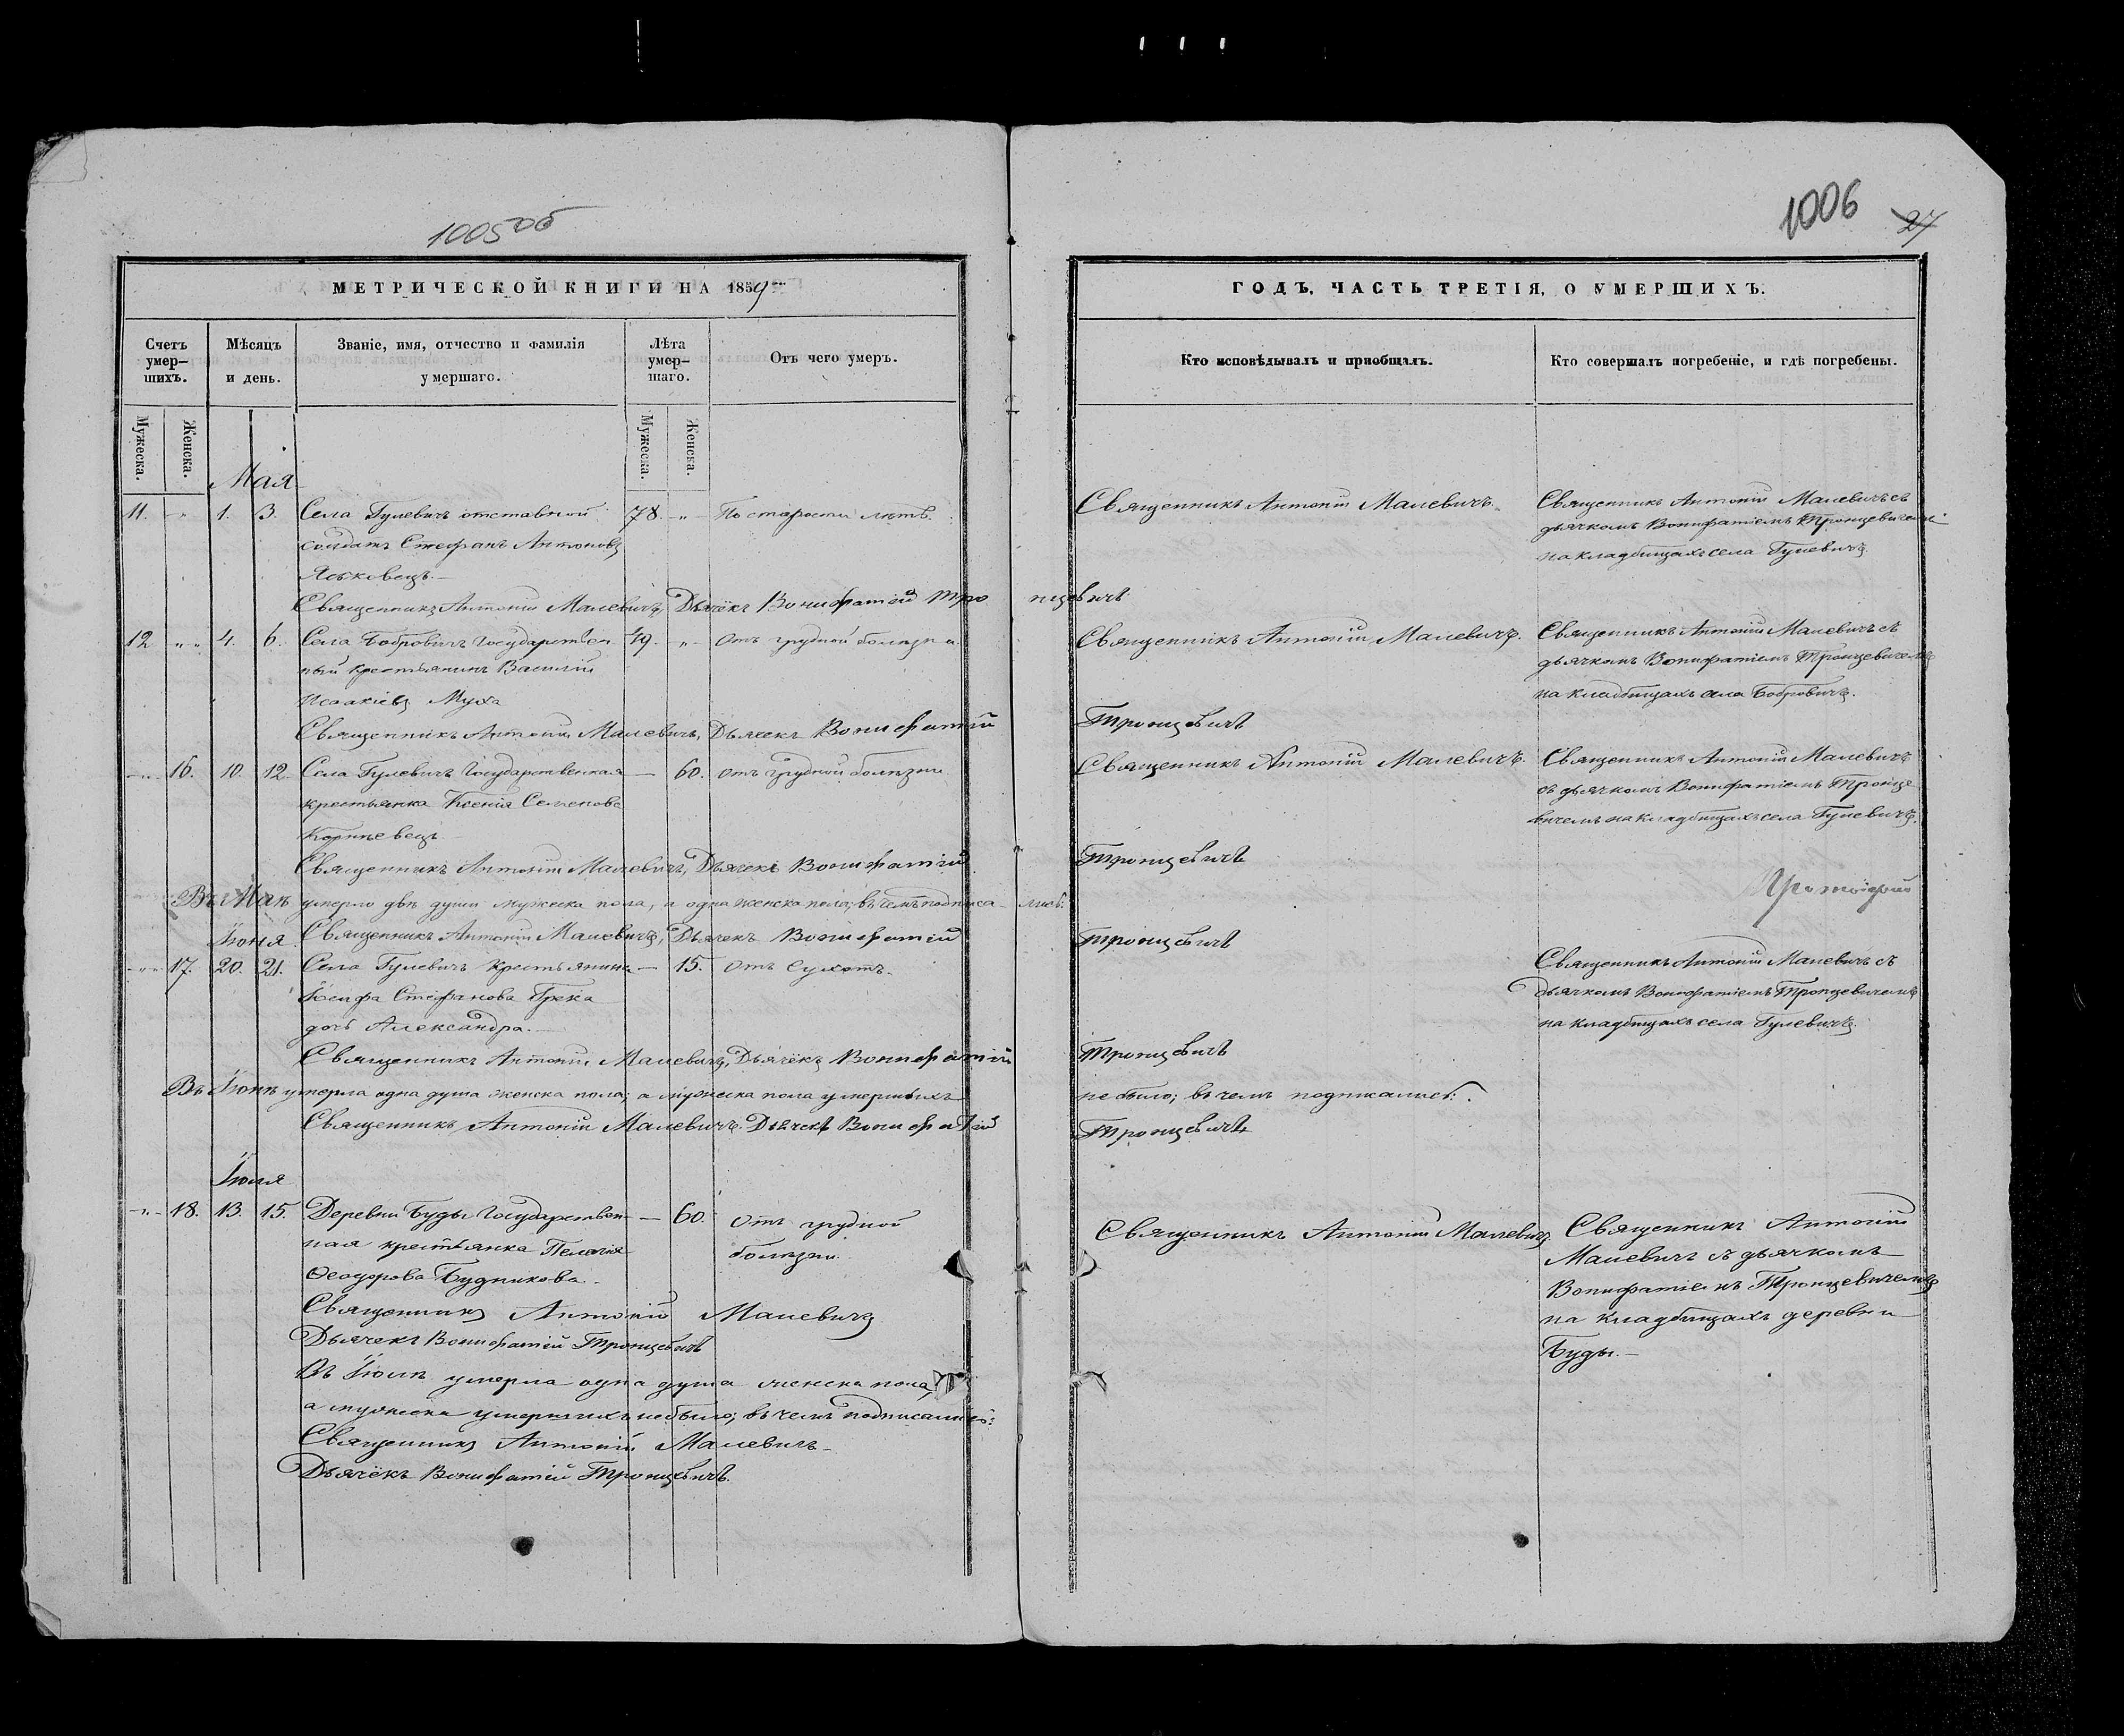 1005об
МЕТРИЧЕСКОЙ КНИГИ НА 1859
Счетъ умер-шихъ.
Мѣсяцъ и день.
Званіе, имя, отчество и фамилія умершаго.
Лѣта умер-шаго.
Отъ чего умеръ.
Мужеска. Женска. Мужеска. Женска.
Мая
11. " 1. 3. Села Гулевичъ отставной 78. " По старости лѣтъ.
солдатъ Стефанъ Антоновъ
Священникъ Антоній Малевичъ, Дьячёкъ Вонифатій Тро
12 " 4. 6. Села Бобровичъ Государствен 49. " Отъ грудной болѣзни
ный крестьянинъ Василій
Исаакіевъ Муха
Священникъ Антоній Малевичъ, Дьячекъ Вонифатій
" 16. 10. 12 Села Гулевичъ Государственная — 60. отъ грудной болѣзни
крестьянка Ксенія Семенова
Корнѣевецъ
Священникъ Антоній Малевичъ, Дьячекъ Вонифатій
Въ Маѣ умерло двѣ души мужеска пола, а одна женска пола; въ чемъ подписа-
Іюня Священникъ Антоній Малевичъ, Дьячекъ Вонифатій
" 17. 20. 21. Села Гулевичъ крестьянина — 15. Отъ сухотъ.
Стефанова
дочь Александра.
Священникъ Антоній Малевичъ, Дьячёкъ Вонифатій
Въ Іюнѣ умерла одна душа женска пола; а мужеска пола умершихъ
Священникъ Антоній Малевичъ. Дьячекъ Вонифатій
Іюля
" 18. 13. 15. Деревни Буды Государствен — 60. Отъ грудной
ная крестьянка Пелагія болѣзни.
Ѳеодорова Будникова.
Священникъ Антоній Малевичъ
Дьячекъ Вонифатій Тронцевичъ
Въ Іюлѣ умерла одна душа женска пола,
а мужеска умершихъ небыло; въ чемъ подписались:
Священникъ Антоній Малевичъ
Дьячёкъ Вонифатій Тронцевичъ.
1006 27
ГОДЪ, ЧАСТЬ ТРЕТІЯ, О УМЕРШИХЪ.
Кто исповѣдывалъ и пріобщалъ.
Кто совершалъ погребеніе, и гдѣ погребены.
Священникъ Антоній Малевичъ.
Священникъ Антоній Малевичъ съ
дьячкомъ Вонифатіемъ Тронцевичемъ
на кладбищахъ села Гулевичъ.
нцевичъ
Священникъ Антоній Малевичъ.
Священникъ Антоній Малевичъ съ
дьячкомъ Вонифатіемъ Тронцевичемъ
на кладбищахъ села Бобровичъ.
Тронцевичъ
Священникъ Антоній Малевичъ.
Священникъ Антоній Малевичъ
съ дьячкомъ Вонифатіемъ Тронце
вичемъ на кладбищахъ села Гулевичъ.
Тронцевичъ
лись:
Тронцевичъ
Священникъ Антоній Малевичъ съ
Дьячкомъ Вонифатіемъ Тронцевичемъ
на кладбищахъ села Гулевичъ.
Тронцевичъ
небыло; въ чемъ подписались:
Тронцевичъ
Священникъ Антоній Малевичъ
Священникъ Антоній
Малевичъ съ дьячкомъ
Вонифатіемъ Тронцевичемъ
на кладбищахъ деревни
Буды.—